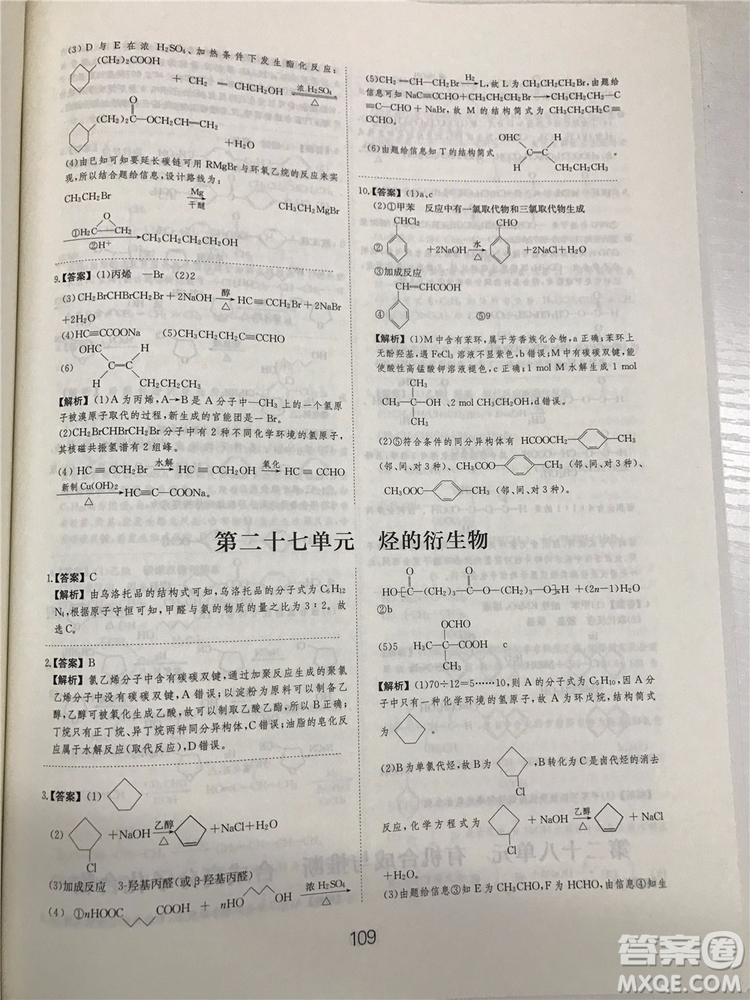 (3) D 与 E 在浓 H₂SO₄、加热条件下发生酯化反应:
(CH₂)₂COOH
+ CH₂=CHCH₂OH 浓 H₂SO₄ △
O
(CH₂)₂—C—OCH₂CH=CH₂
(4)由已知可知要延长碳链可用 RMgBr 与环氧乙烷的反应来实现,所以结合题给信息,设计路线为:
CH₃CH₂Br Mg 干醚 CH₃CH₂MgBr
O
①H₂C—CH₂ ②H⁺ CH₃CH₂CH₂CH₂OH
9.【答案】(1)丙烯 —Br (2)2
(3) CH₂BrCHBrCH₂Br + 2NaOH 醇 △ HC≡CCH₂Br + 2NaBr
+2H₂O
(4)HC≡CCOONa (5)CH₃CH₂CH₂C≡CCHO
OHC H
(6) C=C
H CH₂CH₂CH₃
【解析】(1)A 为丙烯,A→B 是 A 分子中—CH₃ 上的一个氢原
子被溴原子取代的过程,新生成的官能团是—Br。
(2)CH₂BrCHBrCH₂Br 分子中有 2 种不同化学环境的氢原子,
其核磁共振氢谱有 2 组峰。
(4) HC≡CCH₂Br 水解 HC≡CCH₂OH 氧化 HC≡CCHO
新制 Cu(OH)₂ △ HC≡C—COONa。
(5)CH₂=CH—CH₂Br H₂ L,故 L 为 CH₃CH₂CH₂Br,由题给
信息知 NaC≡CCHO+CH₃CH₂CH₂Br→CH₃CH₂CH₂C
≡CCHO + NaBr,故 M 的结构简式为 CH₃CH₂CH₂C≡
CCHO。
OHC H
(6)由题给信息知 T 的结构简式 C=C 。
H CH₂CH₂CH₃
10.【答案】(1)a、c
(2)①甲苯 反应中有一氯取代物和三氯取代物生成
CHCl₂ CHO
② +2NaOH 水 △ +2NaCl+H₂O
③加成反应
CH=CHCOOH
④ ⑤9
【解析】(1)M 中含有苯环,属于芳香族化合物,a 正确;苯环上
无酚羟基,遇 FeCl₃ 溶液不显紫色,b 错误;M 中有碳碳双键,能
使酸性高锰酸钾溶液褪色,c 正确;1 mol M 完全水解生成 1 mol
CH₃
CH₃—C—OH 、2 mol CH₃OH,d 错误。
CH₃
(2)⑤符合条件的同分异构体有 HCOOCH₂ CH₃
(邻、间、对 3 种)、 CH₃COO CH₃ (邻、间、对 3 种)、
CH₃OOC CH₃ (邻、间、对 3 种)。
第二十七单元 烃的衍生物
1.【答案】C
【解析】由乌洛托品的结构式可知,乌洛托品的分子式为 C₆H₁₂
N₄,根据原子守恒可知,甲醛与氨的物质的量之比为 3∶2。故
选 C。
2.【答案】B
【解析】氯乙烯分子中含有碳碳双键,通过加聚反应生成的聚氯
乙烯分子中没有碳碳双键,A 错误;以淀粉为原料可以制取乙
醇,乙醇可被氧化生成乙酸,故可以制取乙酸乙酯,B 正确;丁
烷只有正丁烷、异丁烷两种同分异构体,C 错误;油脂的皂化反
应属于水解反应(取代反应),D 错误。
3.【答案】(1)
(2) Cl +NaOH 乙醇 △ +NaCl+H₂O
(3)加成反应 3-羟基丙醛(或 β-羟基丙醛)
(4) ①nHOOC COOH + nHO OH 浓 H₂SO₄ △
O O
HO[C—CH₂CH₂CH₂—C—O—CH₂CH₂CH₂—O]ₙH +(2n−1)H₂O
②b
OCHO
(5)5 H₃C—C—COOH c
CH₃
【解析】(1)70÷12=5……10,则 A 的分子式为 C₅H₁₀,因 A 分
子中只有一种化学环境的氢原子,故 A 为环戊烷,结构简式
为 。
(2)B 为单氯代烃,故 B 为 Cl ,B 转化为 C 为氯代烃的消去
反应,化学方程式为 Cl + NaOH 乙醇 △ + NaCl
+H₂O。
(3)由题给信息④可知 E 为 CH₃CHO,F 为 HCHO,由信息④知生
109
答案圈
MXQE.COM